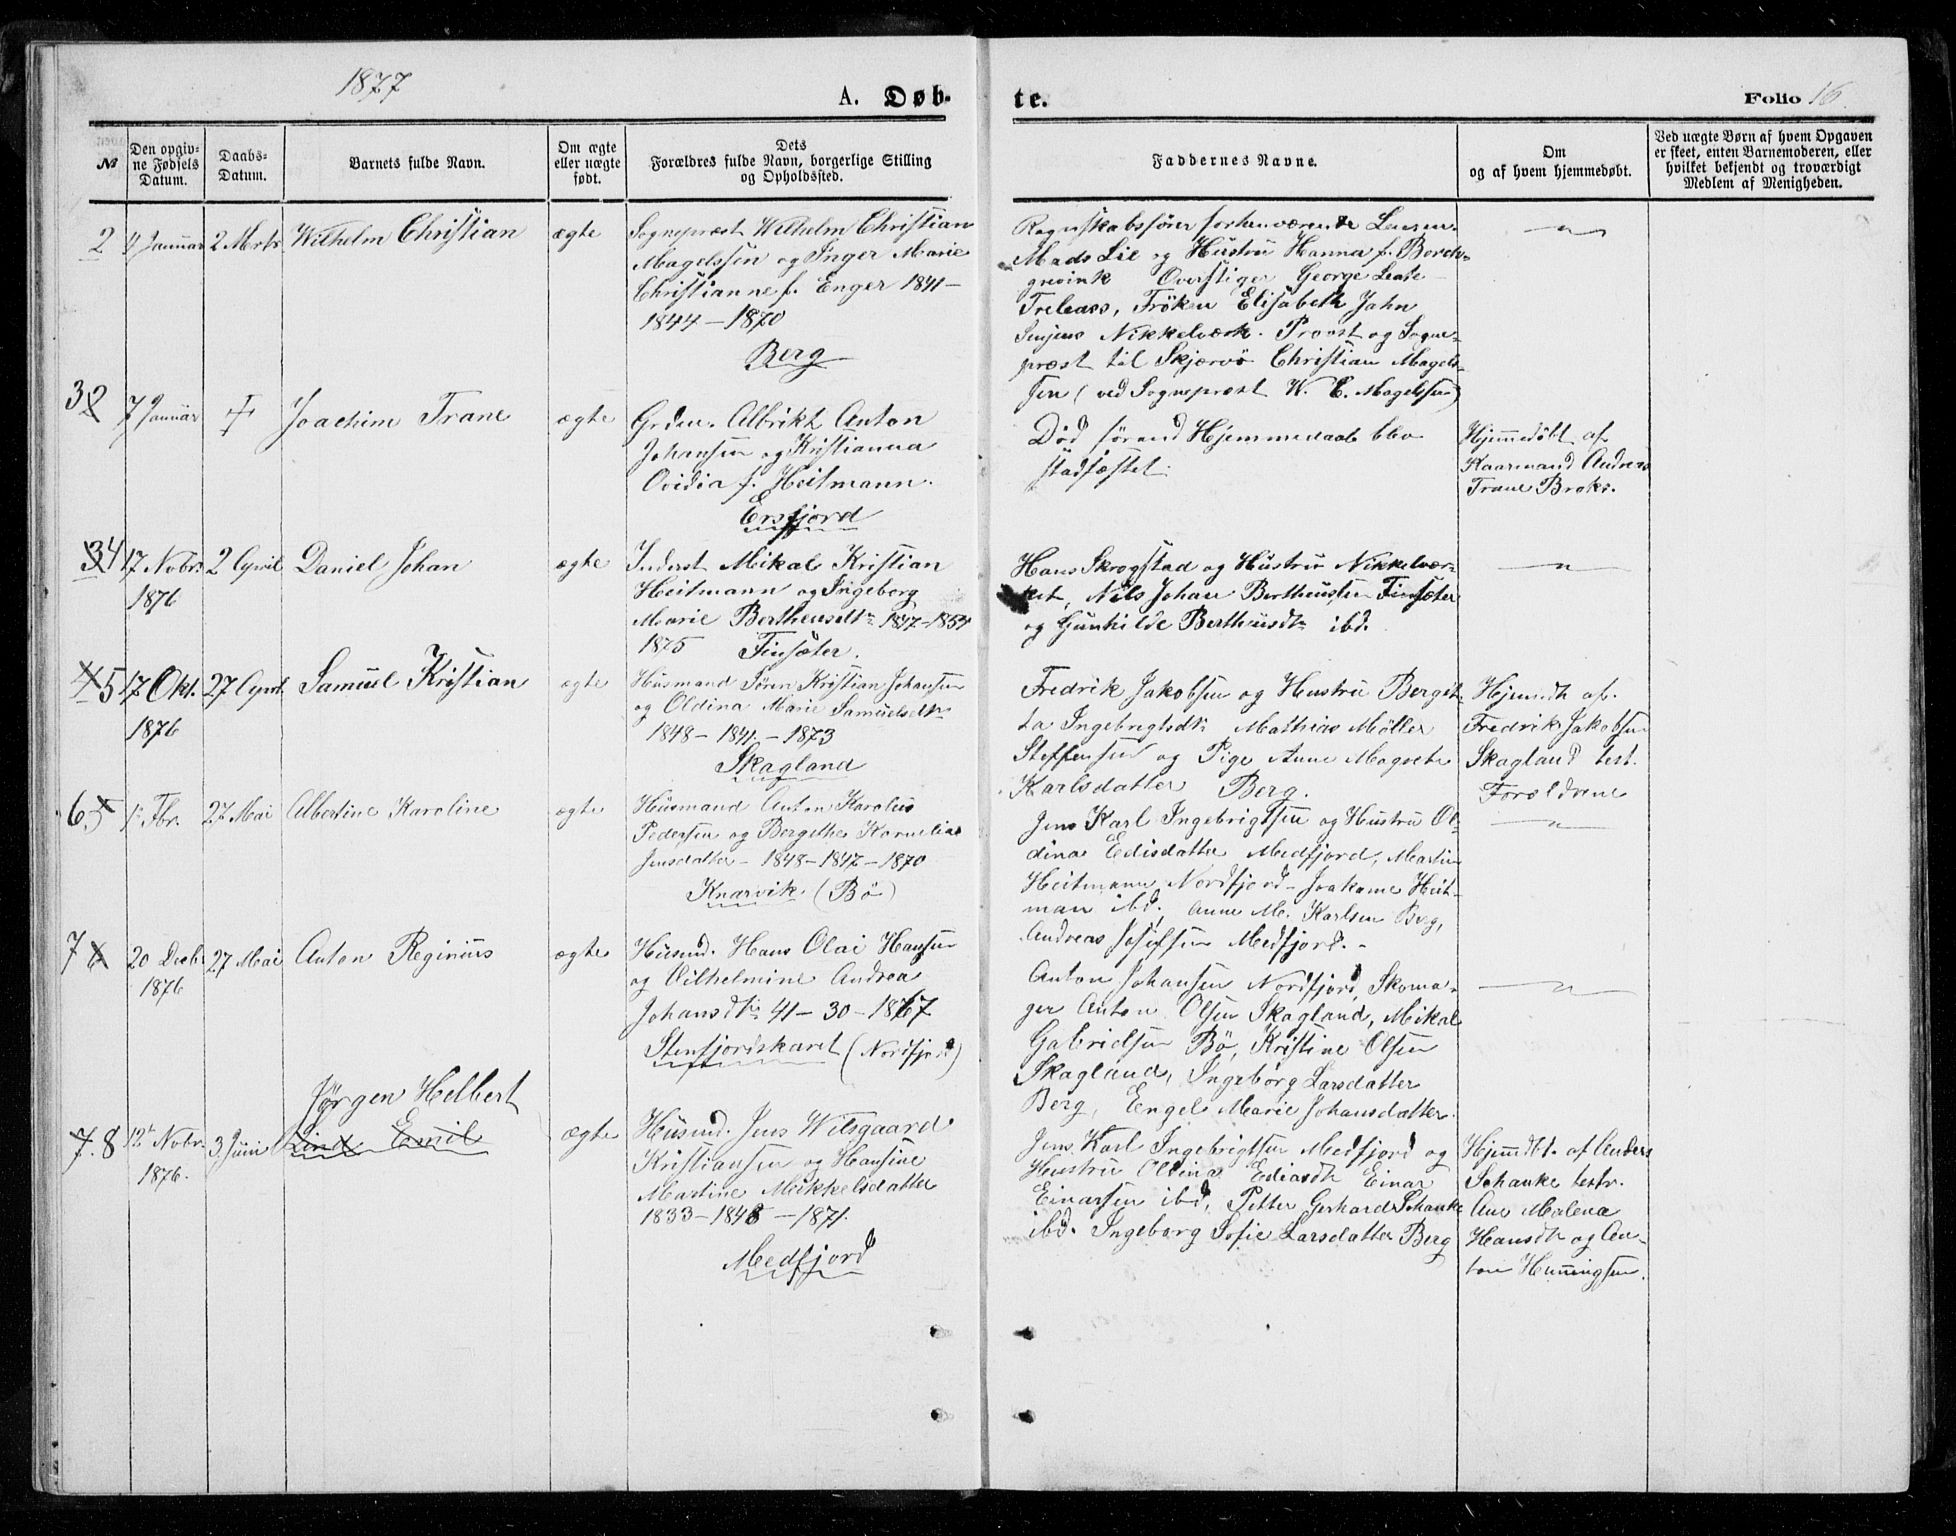 1877
A. Døb-
te.
Folio 16.
№
Den opgiv-
ne Fødsels
Datum.
Daabs-
Datum.
Barnets fulde Navn.
Om ægte
eller uægte
født.
Dets
Forældres fulde Navn, borgerlige Stilling
og Opholdssted.
Faddernes Navne.
Om
og af hvem hjemmedøbt.
Ved uægte Børn af hvem Opgaven
er skeet, enten Barnemoderen, eller
hvilket bekjendt og troværdigt
Medlem af Menigheden.
2 Januar 2 Marts Wilhelm Christian ægte
Sognepræst Wilhelm Christian
Magelssen og Inger Marie
Christianne f. Enger 1841-
1844 - 1870
Berg
Regnskabsfører forhenværende
Mads Lie og Hustru Hanna f. Borch-
grevink Overstiger George Leate
Treleass, Frøken Elisabeth Jahn
Senjens Nikkelværk. Provst og Sogne-
præst til Skjærvö Christian Magels-
sen (ved Sognepræst W. C. Magelssen)
32 7 Januar Joachim Trane ægte
Grdm. Albrikt Anton
Johansen og Kristianna
Ovidia f. Heitmann.
Ersfjord
Død förend Hjemmedaab blev
stadfæstet.
Hjemmedöbt af
Kaarmand Andreas
Trane Broks.
34 17 Novbr. 2 April Daniel Johan ægte
1876
Inderst Mikal Kristian
Heitmann og Ingeborg
Marie Bertheusdtr 1847-1854
1875 Finsæter.
Hans Skrogstad og Hustru Nikkelvær-
ket, Nils Johan Bertheussen Finsæter
og Gunhilde Bertheusdtr ibd.
45 17 Okt. 27 April Samuel Kristian ægte
1876
Husmand Sören Kristian Johansen
og Oldina Marie Samuelsdtr
1848 - 1841 - 1873
Skagland
Fredrik Jakobsen og Hustru Bergit-
ta Ingebrigtsdtr Mathias Möller
Steffensen og Pige Anne Magrete
Karlsdatter Berg.
Hjemdt af
Fredrik Jakobsen
Skagland test.
Forældrene
65 1 Fbr. 27 Mai Albertine Karoline ægte
Husmand Anton Karolius
Pedersen og Bergithe Kornelia
Jensdatter - 1848 - 1847 - 1870
Knarvik (Bö)
Jens Karl Ingebrigtsen og Hustru Ol-
dina Edisdatter Medfjord, Martin
Heitmann Nordfjord - Joakime Heit-
man ibd. Anne M. Karlsen Berg,
Andreas Josefsen Medfjord. -
76 20 Decbr 27 Mai Anton Reginius ægte
1876
Husmd. Hans Olai Hansen
og Vilhelmine Andrea
Johansdtr 41 - 30 - 1867
Stenfjordskaret (Nordfjord)
Anton Johansen Nordfjord, Skoma-
ger Anton Olsen Skagland, Mikal
Gabrielsen Bö, Kristine Olsen
Skagland, Ingebörg Larsdatter
Berg, Engel Marie Johansdatter.
Jørgen Helbert
7.8 12te Novbr. 3 Juni Lind Emil ægte
1876.
Husmd. Jens Wilsgaard
Kristiansen og Hansine
Martine Mikkelsdatter
1833 - 1848 - 1871.
Medfjord
Jens Karl Ingebrigtsen Medfjord og
Hustru Oldina Ediasdtr Einar
Einarsen ibd, Petter Gerhard Schanke
ibd. Ingeborg Sofie Larsdatter Berg
Hjemdbt. af Anders
Schanke testr.
Ane Malena
Hansdtr og An-
ton Henningsen.